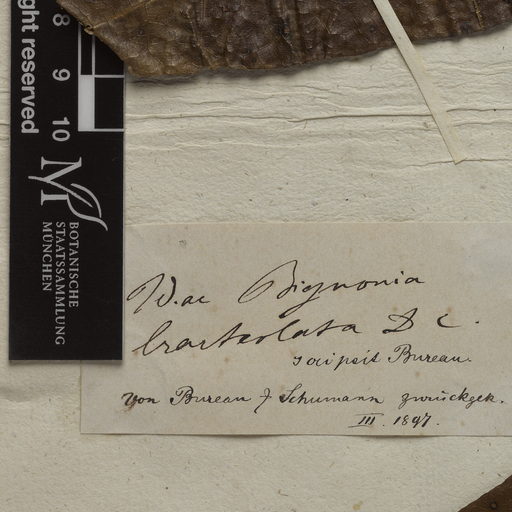 ght reserved
8
9
10
BOTANISCHE
STAATSSAMMLUNG
MÜNCHEN
Bignonia
bracteolata D C.
Bureau.
von Bureau & Schumann zurückgek.
III. 1897.